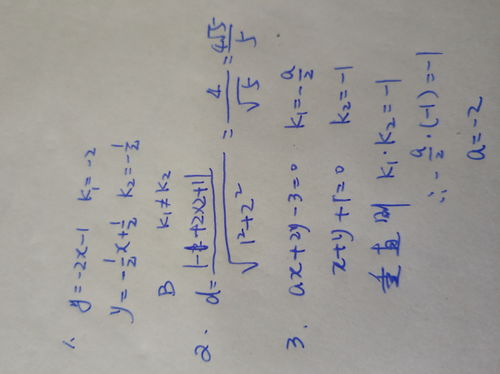 1. y=-2x-1 k₁=-2
y=-\frac{1}{2}x+\frac{1}{2} k₂=-\frac{1}{2}
B k₁≠k₂
2. d=\frac{|-1+2×2+1|}{\sqrt{1²+2²}}=\frac{4}{\sqrt{5}}=\frac{4\sqrt{5}}{5}
3. ax+2y-3=0 k₁=-\frac{a}{2}
x+y+1=0 k₂=-1
垂直则 k₁·k₂=-1
∴-\frac{a}{2}·(-1)=-1
a=-2